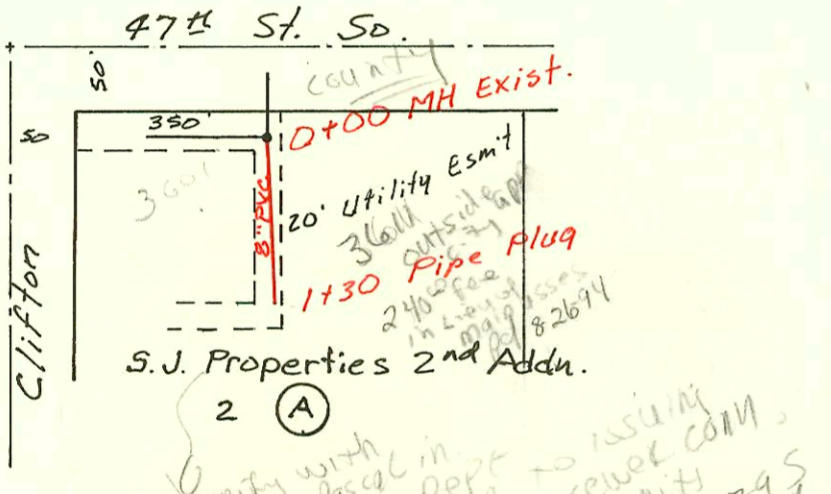 47th St. So.
50'
county
50
350'
0+00 MH Exist.
3601
8" PVC
20' Utility Esmt
3601
outside
city
1+30 Pipe Plug
240 fee
in lieu of
main asses
pd 82694
Clifton
S.J. Properties 2nd Addn.
2 A
with
in
Dept to issuing
sewer conn.